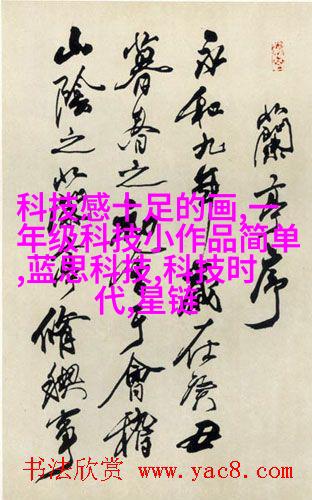 蘭亭序
永和九年歲在癸丑
暮春之于會稽
山陰之蘭亭脩禊事
科技感十足的画,一
年级科技小作品简单
,蓝思科技,科技时
代,星链
书法欣赏 www.yac8.com